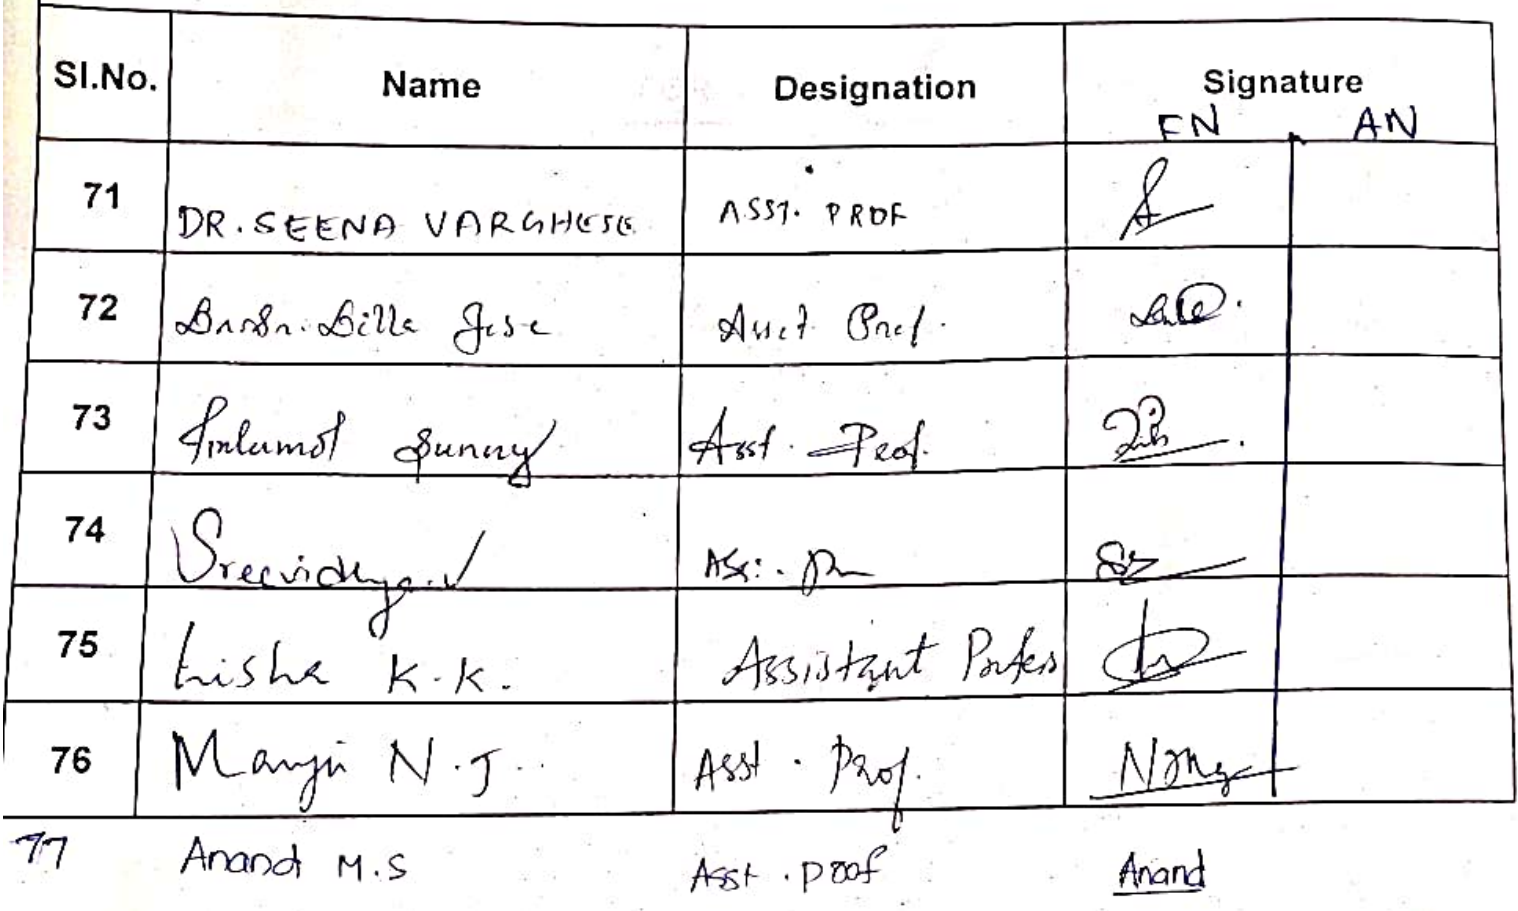 Sl.No. Name Designation Signature
FN AN
71 DR. SEENA VARGHESE ASST. PROF
72 Jose Asst. Prof.
73 Sunny Asst. Prof.
74 Sreevidya.V
75 Lisha K.K. Assistant
76 Manju N.J. Asst. Prof.
77 Anand M.S Asst. Proof Anand